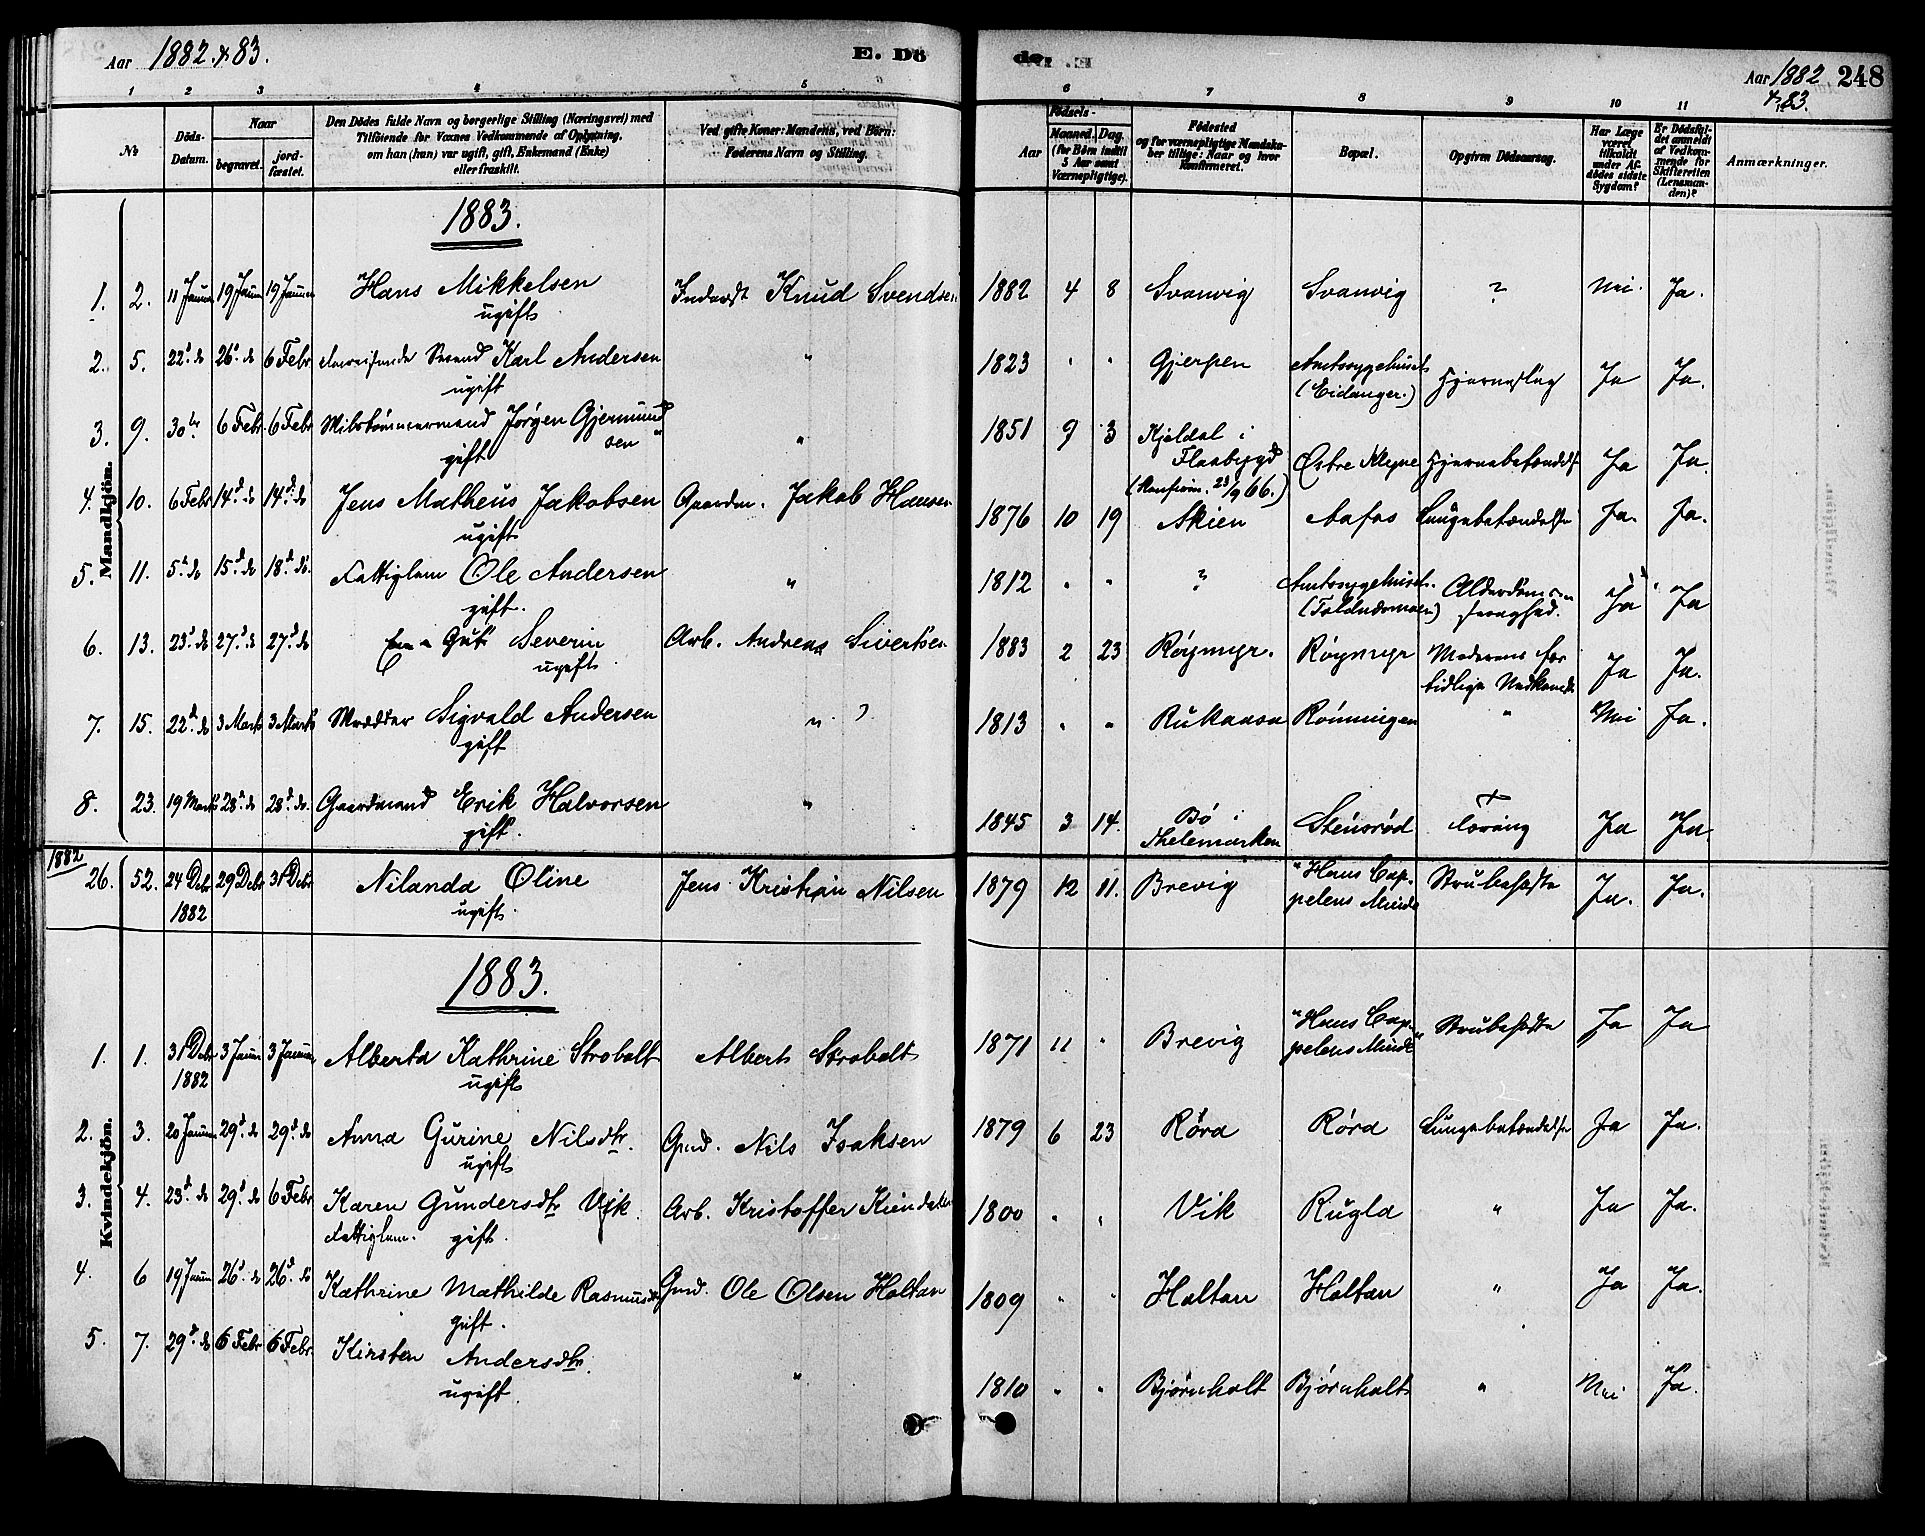 Aar 1882 & 83.
E. Dö
de.
Aar 1882 & 83.
248
1 2 3 4 5 6 7 8 9 10 11
No
Döds-Datum.
Naar
begravet.
jord-fæstet.
Den Dödes fulde Navn og borgerlige Stilling (Næringsvei) med
Tilföiende for Voxnes Vedkommende af Oplysning,
om han (hun) var ugift, gift, Enkemand (Enke)
eller fraskilt.
Ved gifte Koner: Mandens, ved Börn:
Faderens Navn og Stilling.
Födsels-
Aar
Maaned.
Dag.
(for Börn indtil
5 Aar samt
Værnepligtige).
Födested
og for værnepligtige Mandska-
ber tillige: Naar og hvor
Konfirmeret.
Bopæl.
Opgiven Dödsaarsag.
Har Læge
været
tilkaldt
under Af-
dödes sidste
Sygdom?
Er Dödsfal-
det anmeldt
af Vedkom-
mende for
Skifteretten
(Lensman-
den)?
Anmærkninger.
Mandkjön.
1883.
1. 2. 11 Januar 19 Januar 19 Januar Hans Mikkelsen Knud Svendsen 1882 4 8 Svanvig Svanvig ? Nei. Ja.
ugift
2. 5. 22d do 26d do 6 Febr Karl Andersen " 1823 " " Gjerpen Amtssygehuset Hjerneslag Ja Ja.
ugift (Eidanger.)
3. 9. 30te 6 Febr. 6 Febr Jørgen Gjermund " 1851 9 3 Kjeldal i
sen Flaabygd Østre Klepne Hjernebetændelse Ja Ja.
gift (Konfirm. 23/9 66.)
4. 10. 6 Febr 14d do 14d do Jens Matheus Jakobsen Gaardm. Jakob Hansen 1876 10 19 Skien Aafos Lungebetændelse Ja. Ja.
ugift
5. 11. 5d do 15d do 18d do. Fattiglem Ole Andersen " 1812 " " ? Amtssygehuset. Alderdoms-
gift. svaghed. Ja Ja
6. 13. 23d do 27d do 27d do Gut Severin Arb. Andreas Sivertsen 1883 2 23 Røymyr. Røymyr Moderens for
ugift tidlige Nedkomst Ja Ja.
7. 15. 22d do 3 Marts 3 Marts Skrædder Sigvald Andersen " ? 1813 " " Rukaasa Rönningen " Nei Ja.
gift
8. 23. 19 Marts 28d do 28d do. Gaardmand Erik Halvorsen " 1845 3 14. Bø i
gift. Thelemarken Stensrød Tæring Ja Ja
1882
26. 52. 24 Debr 29 Debr 31 Debr Nilanda Oline Jens Kristian Nilsen 1879 12 11. Brevig "Hans Cap-
1882 ugift pelens Minde Strubehoste Ja. Ja.
Kvindekjön.
1883.
1. 1. 31 Debr 3 Januar 3 Januar Alberta Kathrine Strobolt Albert Strobolt 1871 11 " Brevig "Hans Cap-
1882 ugift pelens Minde" Strubehoste Ja Ja
2. 3. 20 Januar 29d do 29d do Anna Gurine Nilsdtr. Gmd. Nils Isaksen 1879 6 23 Rørd Rørd Lungebetændelse Ja Ja.
ugift
3. 4. 23d do 29d do 6 Febr Karen Gundersdtr Vik Arb. Kristoffer 1800 " " Vik Rugla " Ja Ja.
Fattiglem. gift.
4. 6 19 Januar 26d do 26d do Kathrine Mathilde Rasmusdtr Gmd. Ole Olsen Holtan 1809 " " Holtan Holtan " Ja Ja.
gift.
5. 7. 29d do 6 Febr 6 Febr. Kirsten Andersdtr. " 1810 " " Bjørnholt Bjørnholt " Nei Ja.
ugift.